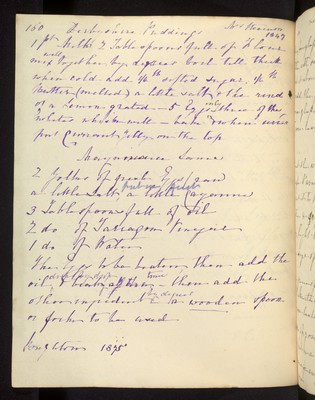 160 Derbyshire Puddings Mrs 1847
1 pt Milk 2 Tablespoons full of Flour
well
mix together by degrees boil till thick
when cold add ¼ lb sifted sugar, ¼ lb
Butter (melted) a little salt, & the rind
of a Lemon grated - 5 Eggs only three of the
whites whisked well - bake & when
put Currant Jelly on the top
Mayonnaise Sauce
2 Yolks of fresh Eggs raw
a little salt, a little Cayenne
3 Tablespoons full of Oil
2 do of Tarragon Vinegar
1 do of Water
The Eggs to be beaten, then add the
oil, - then add the
other ingredients by degrees a wooden spoon
or fork to be used
1875